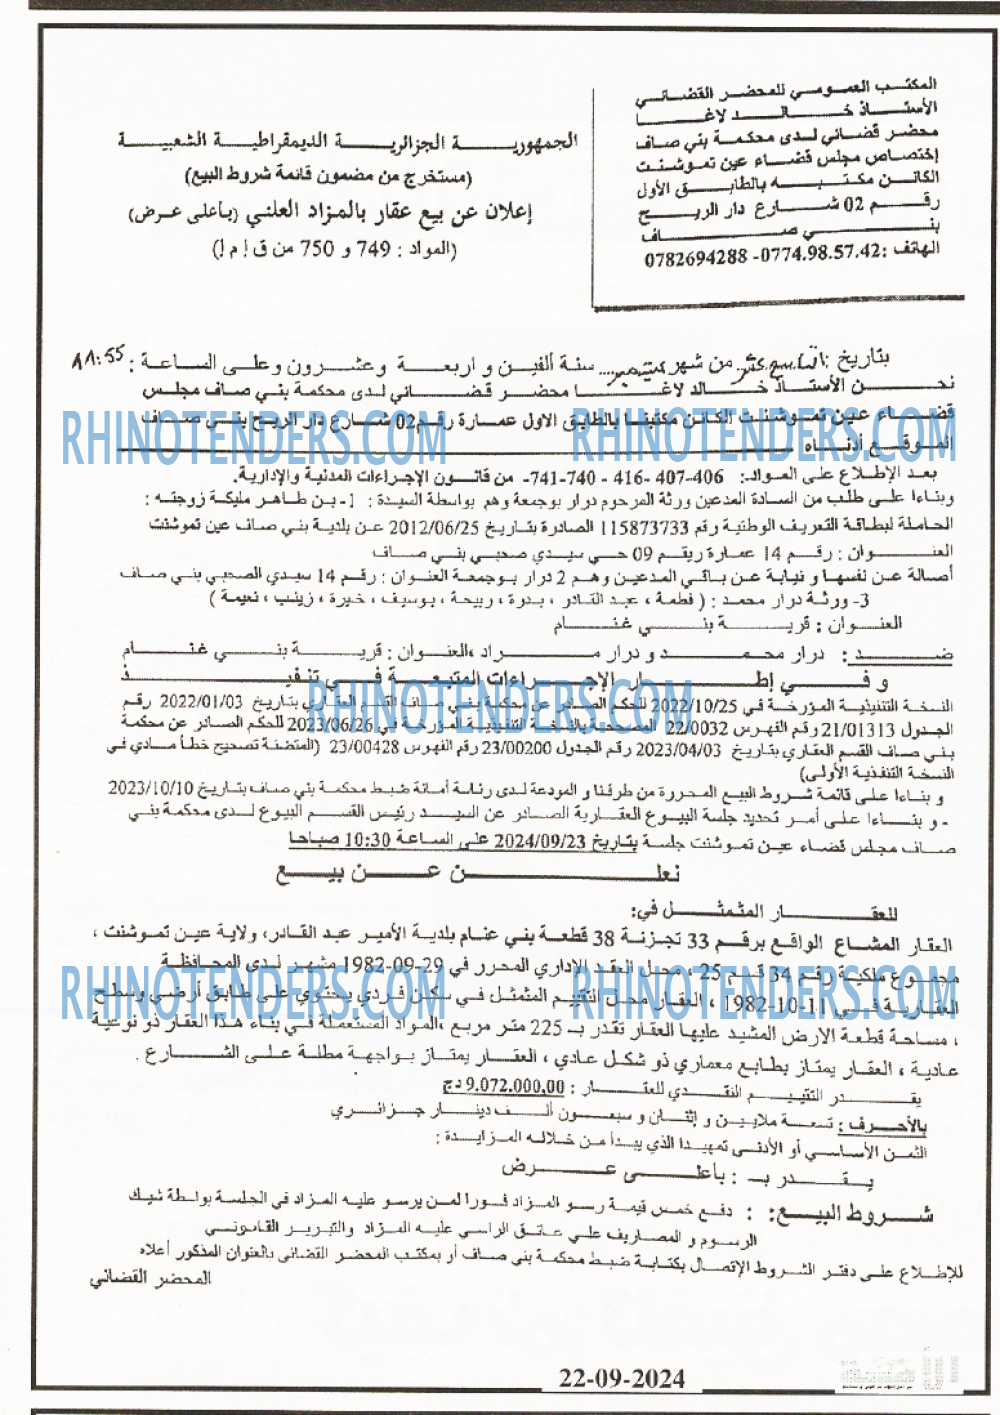 المكتب العمومي للمحضر القضائي
الأستاذ خالد لاغا
محضر قضائي لدى محكمة بني صاف
إختصاص مجلس قضاء عين تموشنت
الكائن مكتبه بالطابق الأول
رقم 02 شارع دار الربح
بني صاف
الهاتف :0774.98.57.42- 0782694288
الجمهورية الجزائرية الديمقراطية الشعبية
(مستخرج من مضمون قائمة شروط البيع)
إعلان عن بيع عقار بالمزاد العلني (بأعلى عرض)
(المواد : 749 و 750 من ق إ م إ)
بتاريخ :التاسع عشر من شهر سبتمبر... سنة ألفين و اربعة وعشرون وعلى الساعة : 11:55
نحن الأستاذ خالد لاغا محضر قضائي لدى محكمة بني صاف مجلس
قضاء عين تموشنت الكائن مكتبنا بالطابق الاول عمارة رقم02 شارع دار الربح بني صاف
الموقع أدناه
بعد الإطلاع على المواد: 406- 407- 416 - 740-741- من قانون الإجراءات المدنية والإدارية.
وبناءا على طلب من السادة المدعين ورثة المرحوم درار بوجمعة وهم بواسطة السيدة : 1-بن طاهر مليكة زوجته :
الحاملة لبطاقة التعريف الوطنية رقم 115873733 الصادرة بتاريخ 2012/06/25 عن بلدية بني صاف عين تموشنت
العنوان : رقم 14 عمارة ريقم 09 حي سيدي صحبي بني صاف
أصالة عن نفسها و نيابة عن باقي المدعين وهم 2 درار بوجمعة العنوان : رقم 14 سيدي الصحبي بني صاف
3- ورثة درار محمد : ( فطمة ، عبد القادر ، بدرة ، ربيحة ، بوسيف ، خيرة ، زينب ، نعيمة )
العنوان : قرية بني غنام
ضد : درار محمد و درار مراد ،العنوان : قرية بني غنام
و في إطار الإجراءات المتبعة في تنفيذ
النسخة التنفيذية المؤرخة في 2022/10/25 للحكم الصادر عن محكمة بني صاف القسم العقاري بتاريخ 2022/01/03 رقم
الجدول 21/01313 رقم الفهرس 22/0032 المصححة بالنسخة التنفيذية المؤرخة في 2023/06/26 للحكم الصادر عن محكمة
بني صاف القسم العقاري بتاريخ 2023/04/03 رقم الجدول 23/00200 رقم الفهرس 23/00428 (المتضنة تصحيح خطأ مادي في
النسخة التنفذية الأولى)
و بناءا على قائمة شروط البيع المحررة من طرفنا و المودعة لدى رئاسة أمانة ضبط محكمة بني صاف بتاريخ 2023/10/10
- و بناءا على أمر تحديد جلسة البيوع العقارية الصادر عن السيد رئيس القسم البيوع لدى محكمة بني
صاف مجلس قضاء عين تموشنت جلسة بتاريخ 2024/09/23 على الساعة 10:30 صباحا
نعلن عن بيع
للعقار المتمثل في:
العقار المشاع الواقع برقم 33 تجزئة 38 قطعة بني غنام بلدية الأمير عبد القادر، ولاية عين تموشنت ،
مجموع ملكية رقم 34 قسم 25 ، محل العقد الإداري المحرر في 29-09-1982 مشهر لدى المحافظة
العقارية في 11-10-1982 ، العقار محل التقييم المتمثل في سكن فردي يحتوي على طابق أرضي وسطح
، مساحة قطعة الارض المشيد عليها العقار تقدر بـ 225 متر مربع ،المواد المستعملة في بناء هذا العقار ذو نوعية
عادية ، العقار يمتاز بطابع معماري ذو شكل عادي ، العقار يمتاز بواجهة مطلة على الشارع .
يقدر التقييم النقدي للعقار : 9.072.000,00 دج
بالأحرف : تسعة ملايين و إثنان و سبعون ألف دينار جزائري
الثمن الأساسي أو الأدنى تمهيدا الذي يبدأ من خلاله المزايدة :
يقدر بـ : بأعلى عرض
شروط البيع: : دفع خمس قيمة رسو المزاد فورا لمن يرسو عليه المزاد في الجلسة بواطة شيك
الرسوم و المصاريف على عاتق الراسي عليه المزاد والتبرير القانوني
للإطلاع على دفتر الشروط الإتصال بكتابة ضبط محكمة بني صاف أو بمكتب المحضر القضائي بالعنوان المذكور أعلاه
المحضر القضائي
22-09-2024
RHINOTENDERS.COM RHINOTENDERS.COM
RHINOTENDERS.COM
RHINOTENDERS.COM RHINOTENDERS.COM